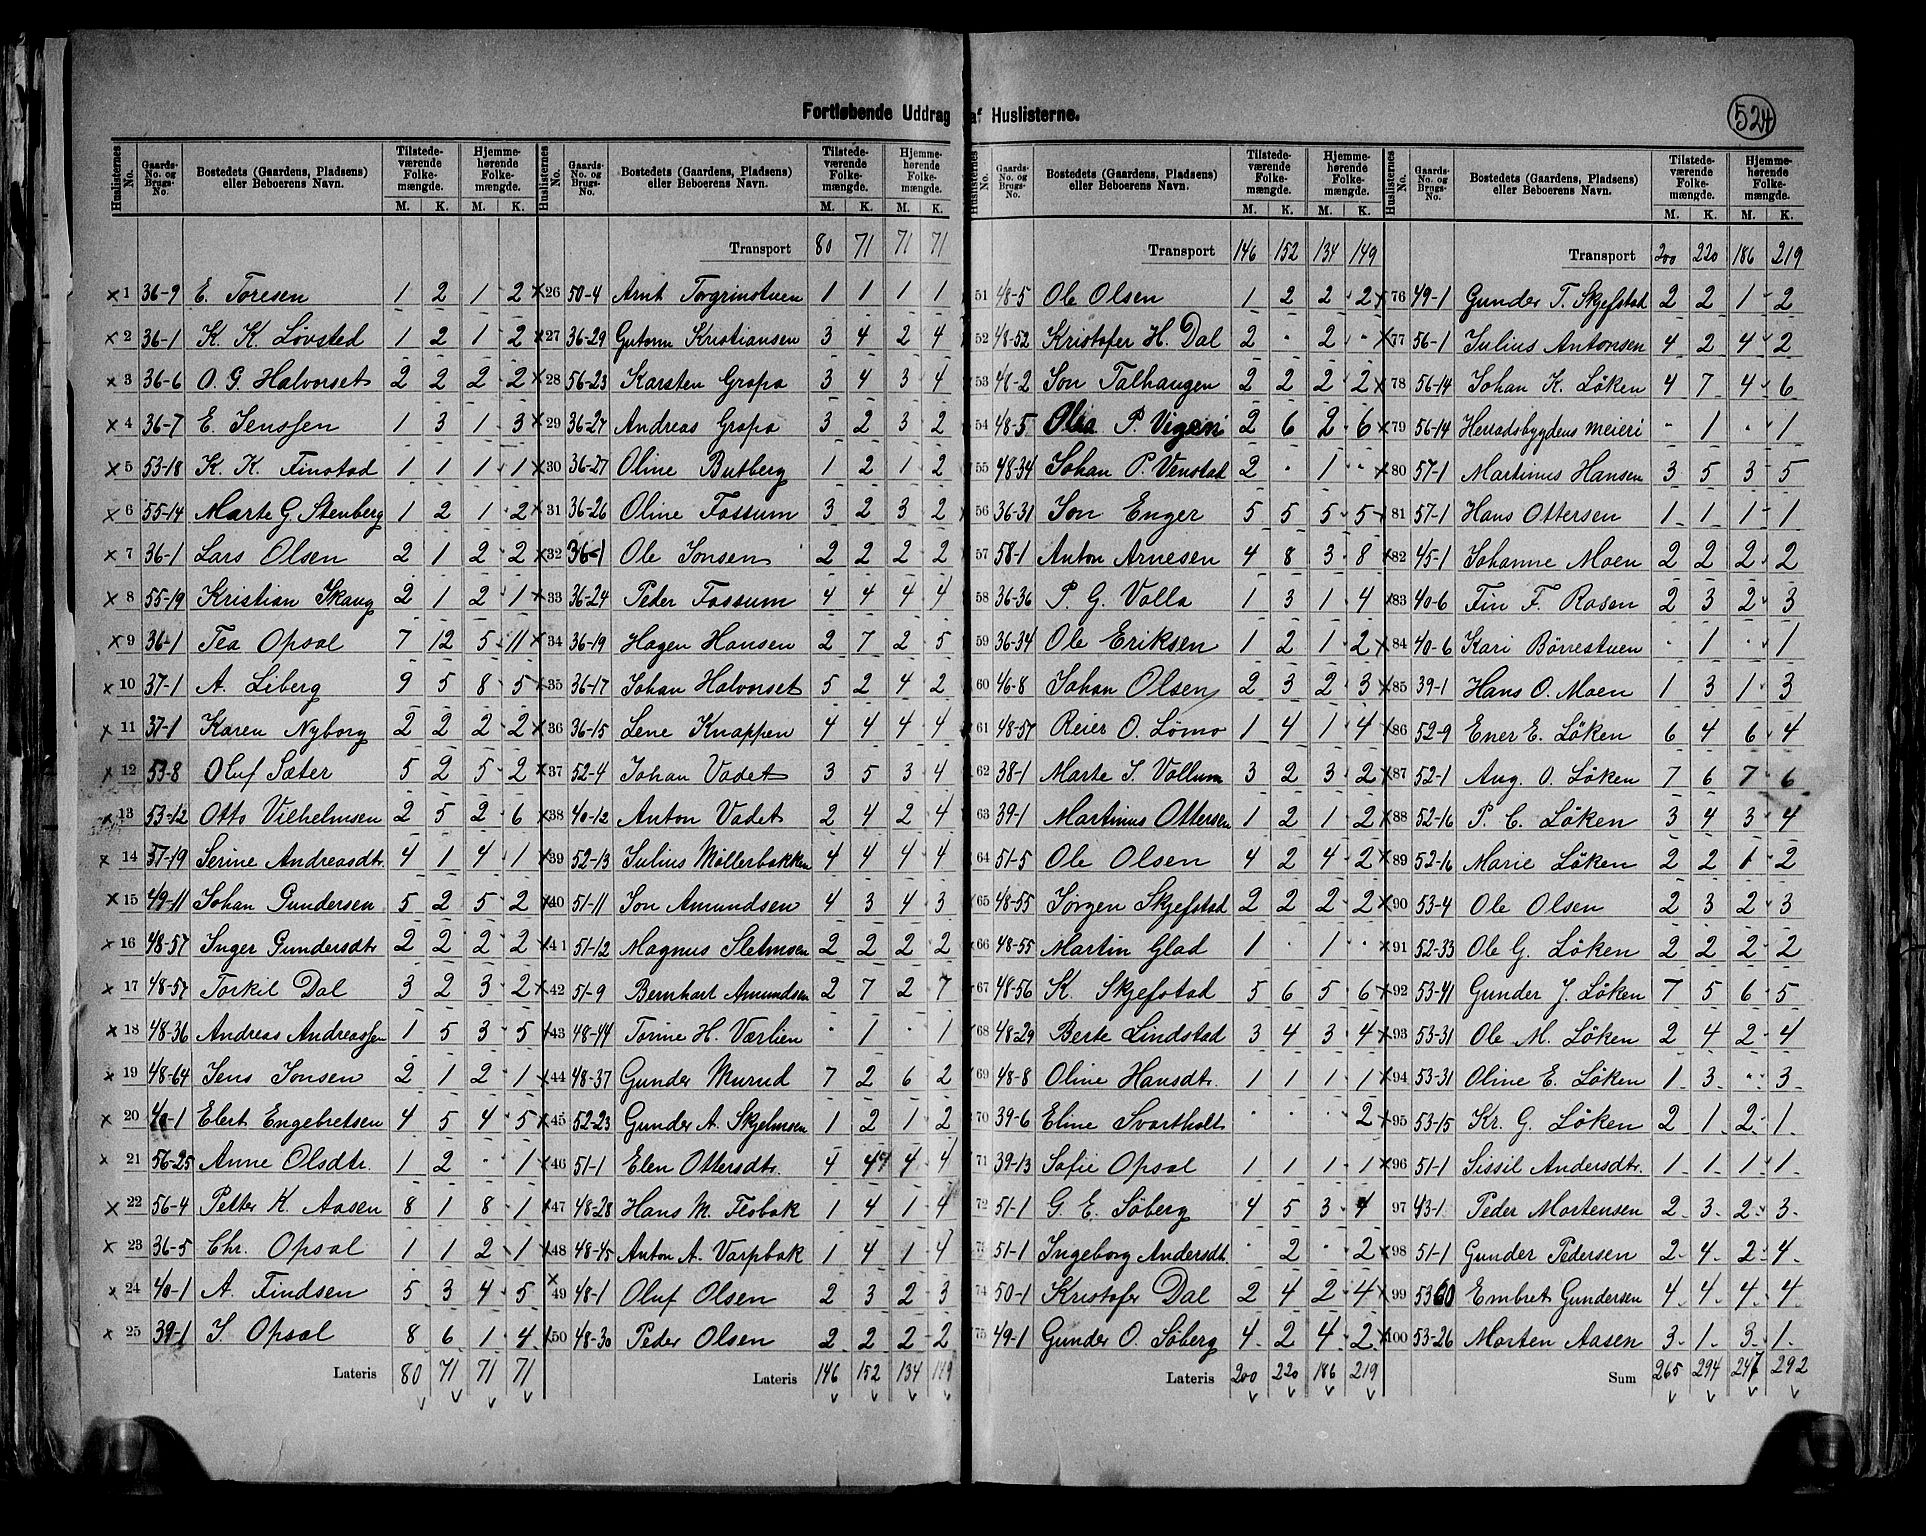 Fortløbende Uddrag af Huslisterne.
524
Huslisternes No. Gaards-No. og Brugs-No. Bostedets (Gaardens, Pladsens) eller Beboerens Navn. Tilstedeværende Folkemængde. M. K. Hjemmehørende Folkemængde. M. K.
1 36-9 E. Toresen 1 2 1 2
2 36-1 K. K. Løvsted 1 2 1 2
3 36-6 O. G. Halvorset 2 2 2 2
4 36-7 E. Jenssen 1 3 1 3
5 53-18 K. K. Finstad 1 1 1 1
6 55-14 Marte G. Stenberg 1 2 1 2
7 36-1 Lars Olsen 2 1 2 2
8 55-19 Kristian Skaug 2 1 2 1
9 36-1 Tea Opsal 7 12 5 11
10 37-1 A. Liberg 9 5 8 5
11 37-1 Karen Nyborg 2 2 2 2
12 53-8 Oluf Sæter 5 2 5 2
13 53-12 Otto Vilhelmsen 2 5 2 6
14 37-19 Serine Andreasdtr. 4 1 4 1
15 49-11 Johan Gundersen 5 2 5 2
16 48-57 Inger Gundersdtr 2 2 2 2
17 48-57 Torkil Dal 3 2 3 2
18 48-36 Andreas Andreassen 1 5 3 5
19 48-64 Jens Jonsen 2 1 2 1
20 40-1 Elert Engebretsen 4 5 4 5
21 56-25 Anne Olsdtr. 1 2 · 1
22 56-4 Petter K. Aasen 8 1 8 1
23 36-5 Chr. Opsal 1 1 2 1
24 40-1 A. Findsen 5 3 4 5
25 39-1 J. Opsal 8 6 1 4
Lateris 80 71 71 71
Huslisternes No. Gaards-No. og Brugs-No. Bostedets (Gaardens, Pladsens) eller Beboerens Navn. Tilstedeværende Folkemængde. M. K. Hjemmehørende Folkemængde. M. K.
Transport 80 71 71 71
26 50-4 Arnt Torgrimstuen 1 1 1 1
27 36-29 Gutorm Kristiansen 3 4 2 4
28 56-23 Karsten Grapa 3 4 3 4
29 36-27 Andreas Grapa 3 2 3 2
30 36-27 Oline Butberg 1 2 1 2
31 36-26 Oline Fossum 3 2 3 2
32 36-1 Ole Jonsen 2 2 2 2
33 36-24 Peder Fossum 4 4 4 4
34 36-19 Hagen Hansen 2 7 2 5
35 36-17 Johan Halvorset 5 2 4 2
36 36-15 Lene Knappen 4 4 4 4
37 52-4 Johan Vadet 3 5 3 4
38 40-12 Anton Vadet 2 4 2 4
39 52-13 Julius Møllerbakken 4 4 4 4
40 51-11 Jon Amundsen 4 3 4 3
41 51-12 Magnus Sletmoen 2 2 2 2
42 51-9 Bernhart Amundsen 2 7 2 7
43 48-44 Torine H. Værlien · 1 · 1
44 48-37 Gunder Murud 7 2 6 2
45 52-23 Gunder A. Skjelmoen 1 2 1 2
46 51-1 Elen Ottersdtr. 4 4 4 4
47 48-28 Hans M. Flobak 1 4 1 4
48 48-45 Anton A. Varpbak 1 4 1 4
49 48-1 Oluf Olsen 2 3 2 3
50 48-30 Peder Olsen 2 2 2 2
Lateris 146 152 134 149
Huslisternes No. Gaards-No. og Brugs-No. Bostedets (Gaardens, Pladsens) eller Beboerens Navn. Tilstedeværende Folkemængde. M. K. Hjemmehørende Folkemængde. M. K.
Transport 146 152 134 149
51 48-5 Ole Olsen 1 2 2 2
52 48-52 Kristofer H. Dal 2 · 2 ·
53 48-2 Jon Talhaugen 2 2 2 2
54 48-5 P. Vigen 2 6 2 6
55 48-34 Johan P. Venstad 2 · 1 ·
56 36-31 Jon Enger 5 5 5 5
57 58-1 Anton Arnesen 4 8 3 8
58 36-36 P. G. Volla 1 3 1 4
59 36-34 Ole Eriksen 1 2 1 2
60 46-8 Johan Olsen 2 3 2 3
61 48-57 Reier O. Lømo 1 4 1 4
62 38-1 Marte J. Vollum 3 2 3 2
63 39-1 Martinus Ottersen 1 2 1 2
64 51-5 Ole Olsen 4 2 4 2
65 48-55 Jørgen Skjefstad 2 2 2 2
66 48-55 Martin Glad 1 · 1 ·
67 48-56 K. Skjefstad 5 6 5 6
68 48-29 Berte Lindstad 3 4 3 4
69 48-8 Oline Hansdtr. 1 1 1 1
70 39-6 Eline Svartholt · · · 2
71 39-13 Sofie Opsal 1 1 1 1
72 51-1 G. E. Søberg 4 5 3 4
73 51-1 Ingeborg Andersdt. · 2 · 2
74 50-1 Kristofer Dal 2 4 2 4
75 49-1 Gunder O. Søberg 4 2 4 2
Lateris 200 220 186 219
Huslisternes No. Gaards-No. og Brugs-No. Bostedets (Gaardens, Pladsens) eller Beboerens Navn. Tilstedeværende Folkemængde. M. K. Hjemmehørende Folkemængde. M. K.
Transport 200 220 186 219
76 49-1 Gunder T. Skjefstad 2 2 1 2
77 56-1 Julius Antonsen 4 2 4 2
78 56-14 Johan K. Løken 4 7 4 6
79 56-14 Herradsbygdens meieri · 1 · 1
80 57-1 Martinus Hansen 3 5 3 5
81 57-1 Hans Ottersen 1 1 1 1
82 45-1 Johanne Moen 2 2 2 2
83 40-6 Fin F. Rasen 2 3 2 3
84 40-6 Kari Børrestuen · 1 · 1
85 39-1 Hans O. Moen 1 3 1 3
86 52-9 Ener E. Løken 6 4 6 4
87 52-1 Aug. O. Løken 7 6 7 6
88 52-16 P. C. Løken 3 4 3 4
89 52-16 Marie Løken 2 2 1 2
90 53-4 Ole Olsen 2 3 2 3
91 52-33 Ole G. Løken 2 2 2 2
92 53-41 Gunder J. Løken 7 5 6 5
93 53-31 Ole M. Løken 2 4 2 4
94 53-31 Oline E. Løken 1 3 · 3
95 53-15 Kr. G. Løken 2 1 2 1
96 51-1 Sissil Andersdtr. 1 1 1 1
97 43-1 Peder Mortensen 2 3 2 3
98 51-1 Gunder Pedersen 2 4 2 4
99 5360 Embret Gundersen 4 4 4 4
100 53-26 Morten Aasen 3 1 3 1
Sum 265 294 247 292